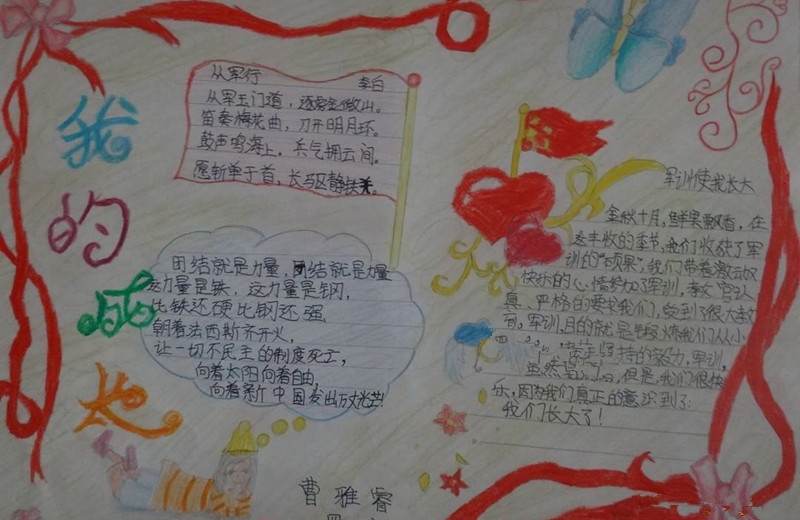 我的成长
从军行
李白
从军玉门道,逐虏金微山。
笛奏梅花曲,刀开明月环。
鼓声鸣海上,兵气拥云间。
愿斩单于首,长驱静铁关。
团结就是力量,团结就是力量
这力量是铁,这力量是钢,
比铁还硬比钢还强,
朝着法西斯齐开火,
让一切不民主的制度死亡,
向着太阳向着自由,
向着新中国发出万丈光芒!
军训使我长大
金秋十月,鲜果飘香,在
这丰收的季节,我们收获了军
训的“硕果”,我们带着激动又
快乐的心情参加了军训,教官认
真、严格的要求我们,受到了很大教
育。军训,目的就是锻炼我们从小
坚持的努力,军训,
虽然,但是,我们很快
乐,因为我们真正的意识到了:
我们长大了!
曹雅睿